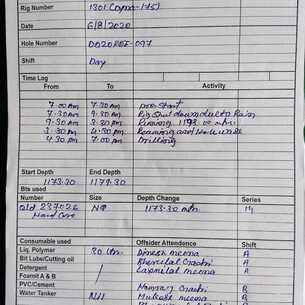 Rig Number 1301 (Dyna-175)
Date 6/8/2020
Hole Number DD20REF-097
Shift Day
Time Log
From To Activity
7.00 Am 7.30 Am pre-Start
7.30 Am 9.30 Am Rig Shut down due to Rain
9.30 Am 3.30 Pm Running 1173.00 mtr.
3.30 Pm 4.30 Pm Reaming and Hole
4.30 Pm 7.00 Am Drilling
Start Depth End Depth
1173.30 1179.30
Bits used
Number Size Depth Change Series
old 237026 NQ 1173.30 mtr. 14
Hard Core
Consumable used Offsider Attendance Shift
Liq. Polymer 30 Ltr. Dinesh meena A
Bit Lube/Cutting oil A
Detergent / Laxmilal meena A
Foamit A & B
PVC/Cement B
Water Tanker N/A Mukesh meena B